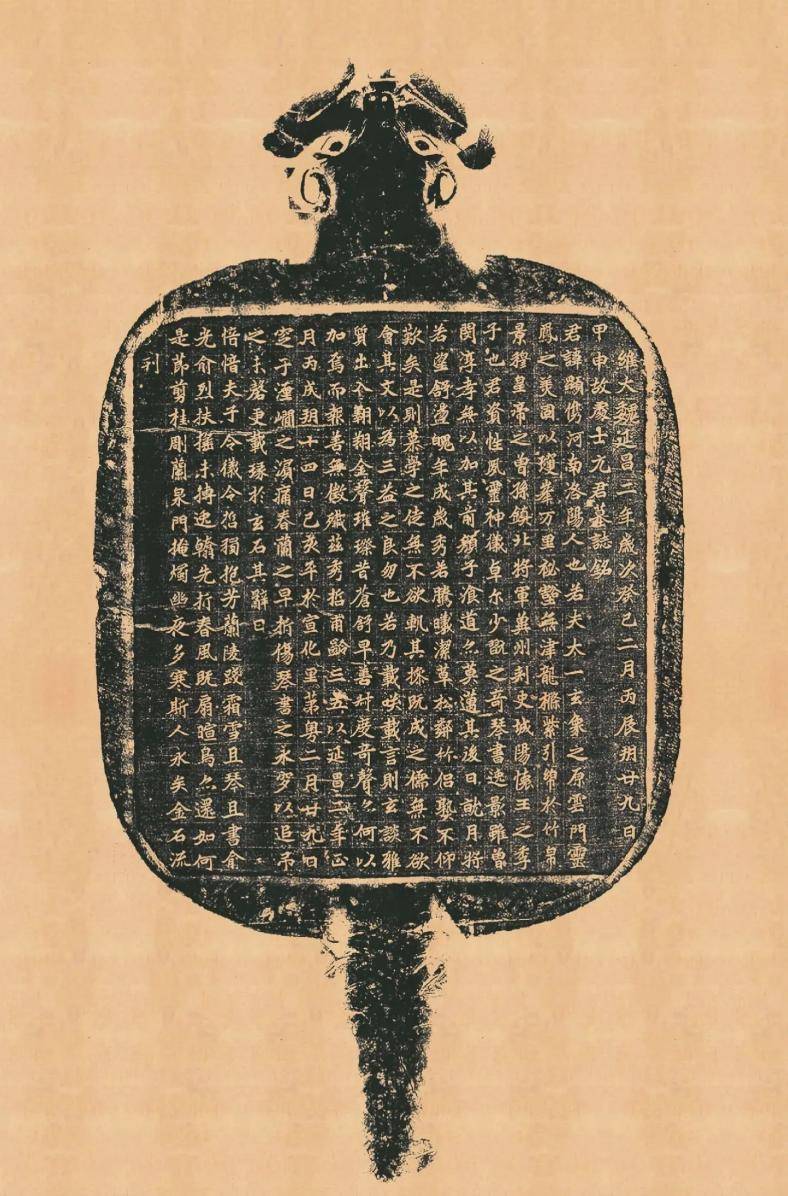 維大魏延昌二年歲次癸巳二月丙辰朔廿九日
甲申故處士元君墓誌銘
君諱顯儁河南洛陽人也若夫太一玄象之原雲門靈
鳳之美固以瓊峯万里秘壑無津龍檦紫引於竹帛
景穆皇帝之曾孫鎮北將軍冀州刾史城陽懷王之季
子也君資性夙靈神儀卓尒少翫之奇琴書逸影雖曾
閔淳孝無以加其前顏子湌道亦莫邁其後日就月將
若望舒盪魄年成歲秀若騰曦潔草松鄰竹侶熟不仰
歎矣是則慕學之徒無不欲軌其操既成之儒無不欲
會其文以為三益之良朋也若乃載咲載言則玄談雅
質出入翱翔金聲璀璨昔蒼舒早善對度奇聲亦何以
加焉而報善無徵殲茲秀哲甫齡三五以延昌二年正
月丙戌朔十四日己亥卒於宣化里第粵二月廿九日
窆于瀍澗之濱痛春蘭之早折傷琴書之永穸以追弔
之未磬更載琢於玄石其辭曰
愔愔夫子令儀令哲獨抱芳蘭陵踐霜雪且琴且書俞
光俞烈扶搖未摶逸翰先折春風既扇暄鳥亦還如何
是節剪桂彫蘭泉門掩燭幽夜多寒斯人永矣金石流
刊